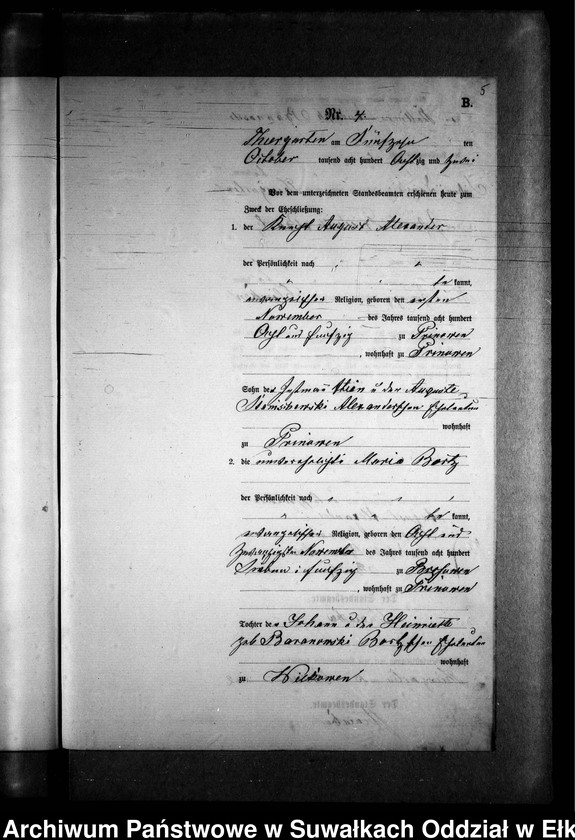 5
B.
Nr. 4.
Thiergarten am Fünfzehn ten
October tausend acht hundert Achtzig und zwei
Vor dem unterzeichneten Standesbeamten erschienen heute zum
Zweck der Eheschließung:
1. der Knecht August Alexander
der Persönlichkeit nach
be kannt,
evangelischer Religion, geboren den ersten
November des Jahres tausend acht hundert
Acht und fünfzig zu Prinowen
, wohnhaft zu Prinowen
Sohn des Instmann u der Auguste
Alexanderschen Eheleuten
wohnhaft
zu Prinowen
2. die unverehelichte Maria Bartz
der Persönlichkeit nach
be kannt,
evangelischer Religion, geboren den Acht und
zwanzigsten November des Jahres tausend acht hundert
Sieben u fünfzig zu
, wohnhaft zu Prinowen
Tochter des Johann u der Heinriette
geb Baranowski Bartzschen Eheleuten
wohnhaft
zu
Archiwum Państwowe w Suwałkach Oddział w Ełk